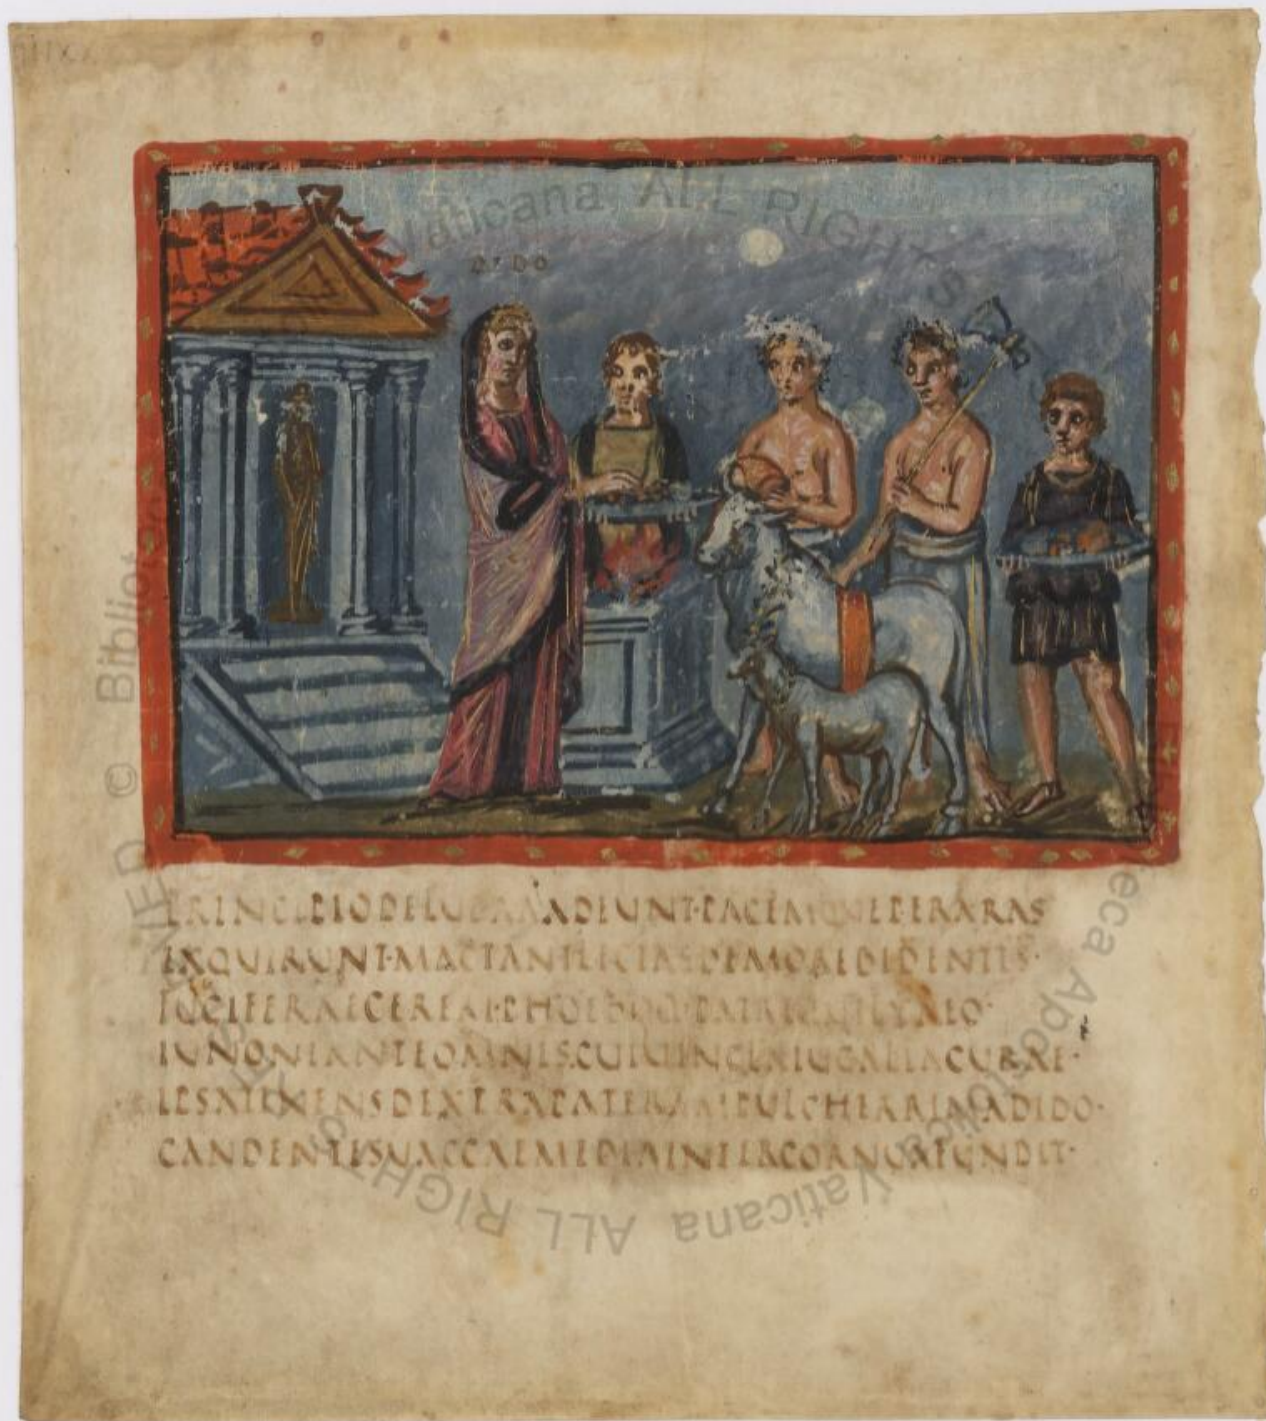 DIDO
PRINCIPIODELUBRAADEUNT·PACEMQUEPERARAS
EXQUIRUNT·MACTANTLECTASDEMOREBIDENTIS·
LEGIFERAECERERI·PHOEBOQ·PATRIQ·LYAEO·
IUNONIANTEOMNIS·CUIUINCLAIUGALIACURAE·
IPSATENENSDEXTRAPATERAMPULCHERRIMADIDO·
CANDENTISUACCAEMEDIAINTERCORNUAFUNDIT·
Vaticana ALL RIGHTS
© Bibliot
eca Apostolica Vaticana ALL RIGHT